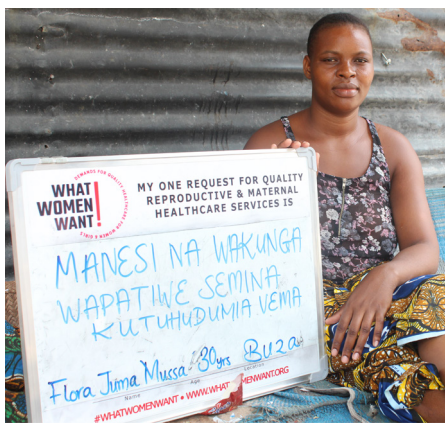 WHAT
WOMEN
WANT!
DEMANDS FOR QUALITY HEALTHCARE FOR WOMEN & GIRLS
MY ONE REQUEST FOR QUALITY
REPRODUCTIVE & MATERNAL
HEALTHCARE SERVICES IS
MANESI NA WAKUNGA
WAPATIWE SEMINA
KUTUHUDUMIA VEMA
Flora Juma Mussa 30yrs Buza
Name Age Location
#WHATWOMENWANT • WWW.WHATWOMENWANT.ORG